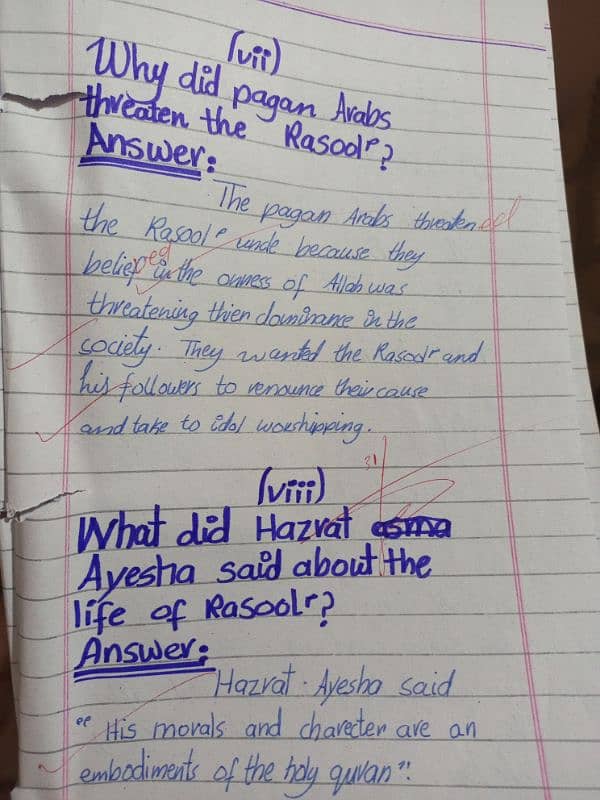 (vii)
Why did pagan Arabs
threaten the Rasoolr?
Answer:
The pagan Arabs threatened
the Rasoolr unde because they
belieped in the onness of Allah was
threatening thier dominance in the
society. They wanted the Rasoolr and
his followers to renounce their cause
and take to idol worshipping.
(viii)
What did Hazrat asma
Ayesha said about the
life of Rasoolr?
Answer:
Hazrat. Ayesha said
" His morals and charecter are an
embodiments of the holy quran".